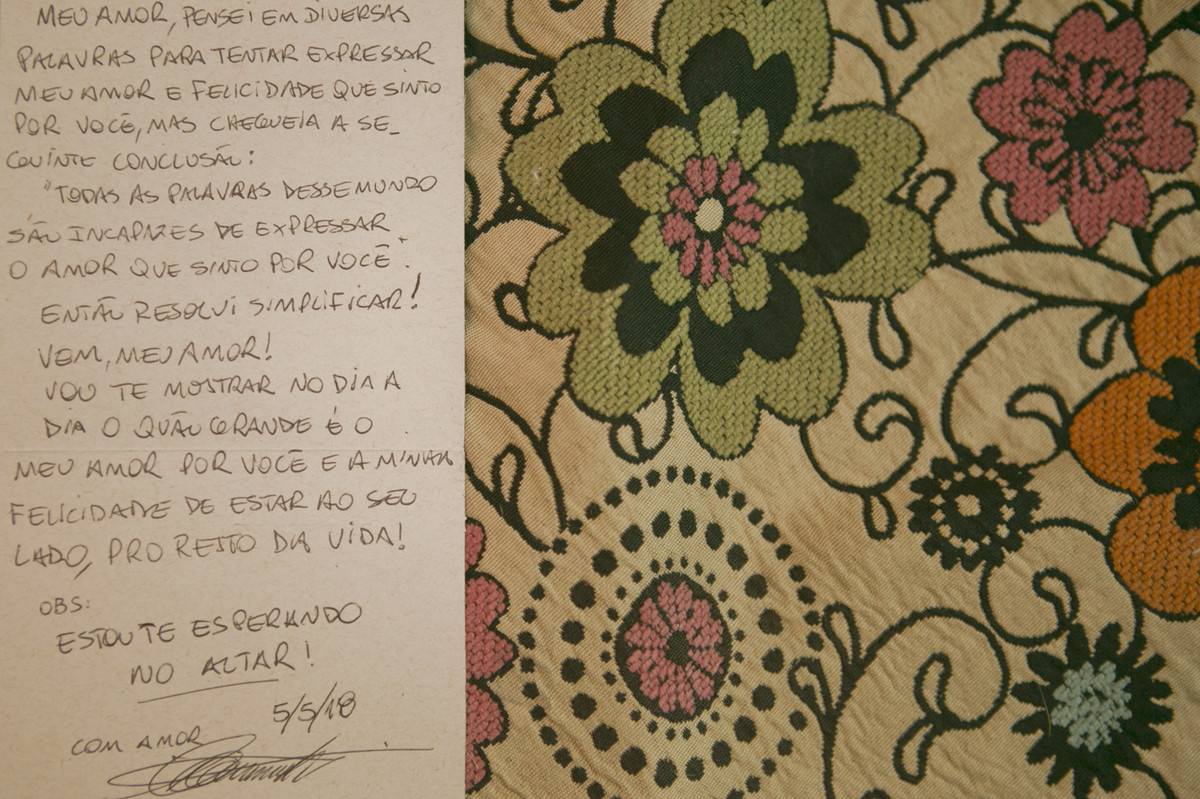 MEU AMOR, PENSEI EM DIVERSAS
PALAVRAS PARA TENTAR EXPRESSAR
MEU AMOR E FELICIDADE QUE SINTO
POR VOCÊ, MAS CHEGUEI A A SE_
GUINTE CONCLUSÃO:
"TODAS AS PALAVRAS DESSE MUNDO
SÃO INCAPAZES DE EXPRESSAR
O AMOR QUE SINTO POR VOCÊ".
ENTÃO RESOLVI SIMPLIFICAR!
VEM, MEU AMOR!
VOU TE MOSTRAR NO DIA A
DIA O QUÃO GRANDE É O
MEU AMOR POR VOCÊ E A MINHA
FELICIDADE DE ESTAR AO SEU
LADO, PRO RESTO DA VIDA!
OBS:
ESTOU TE ESPERANDO
NO ALTAR!
5/5/18
COM AMOR